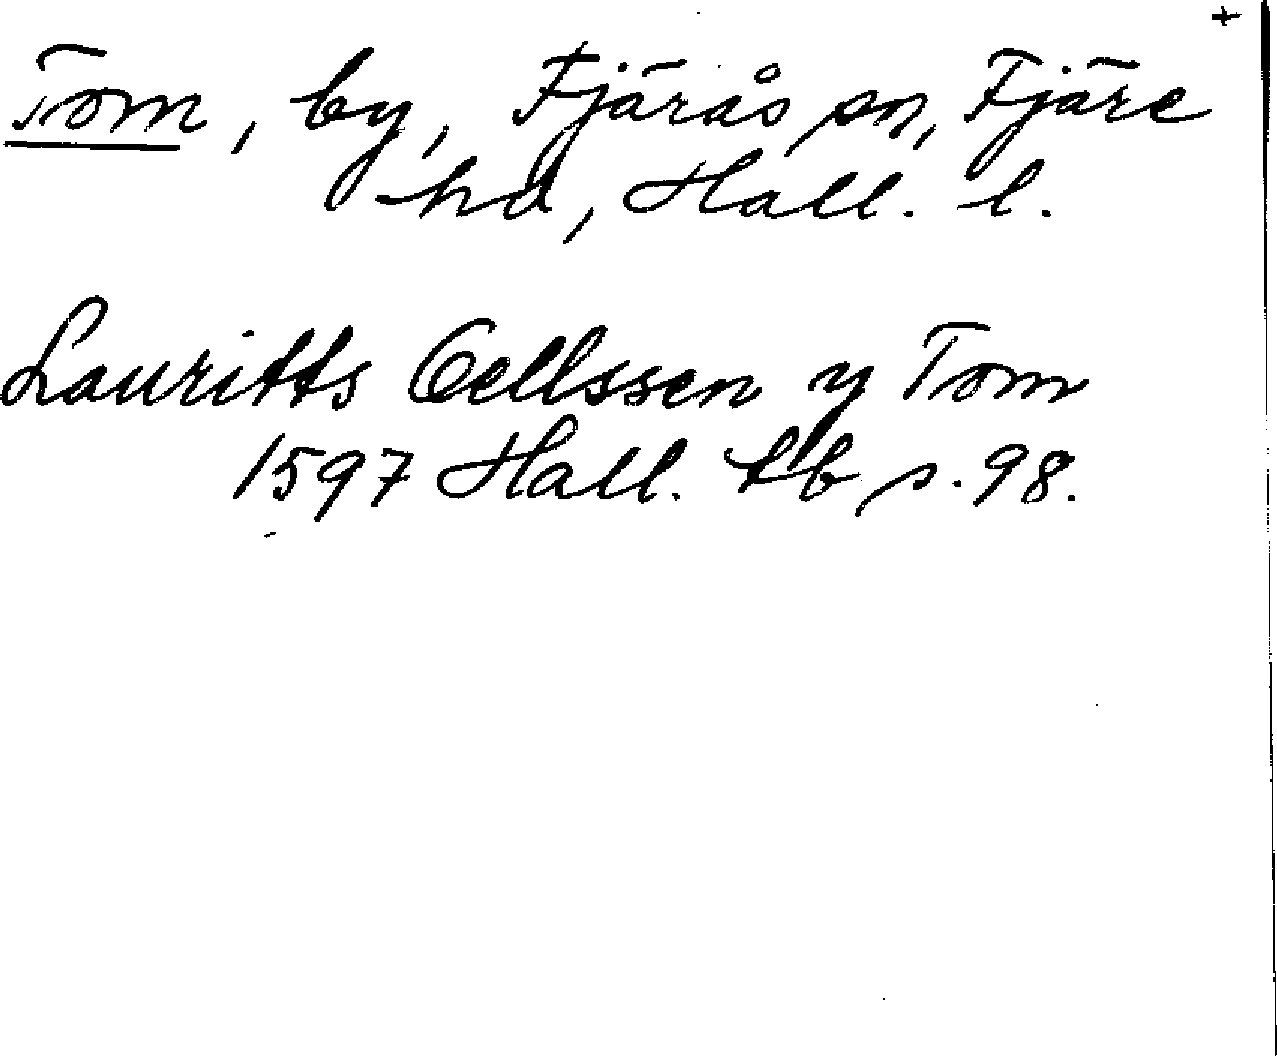 +
Tom, by, Fjärås sn, Fjäre
hd, Hall. l.
Lauritts Oellssen y Tom
1597 Hall. tb s. 98.